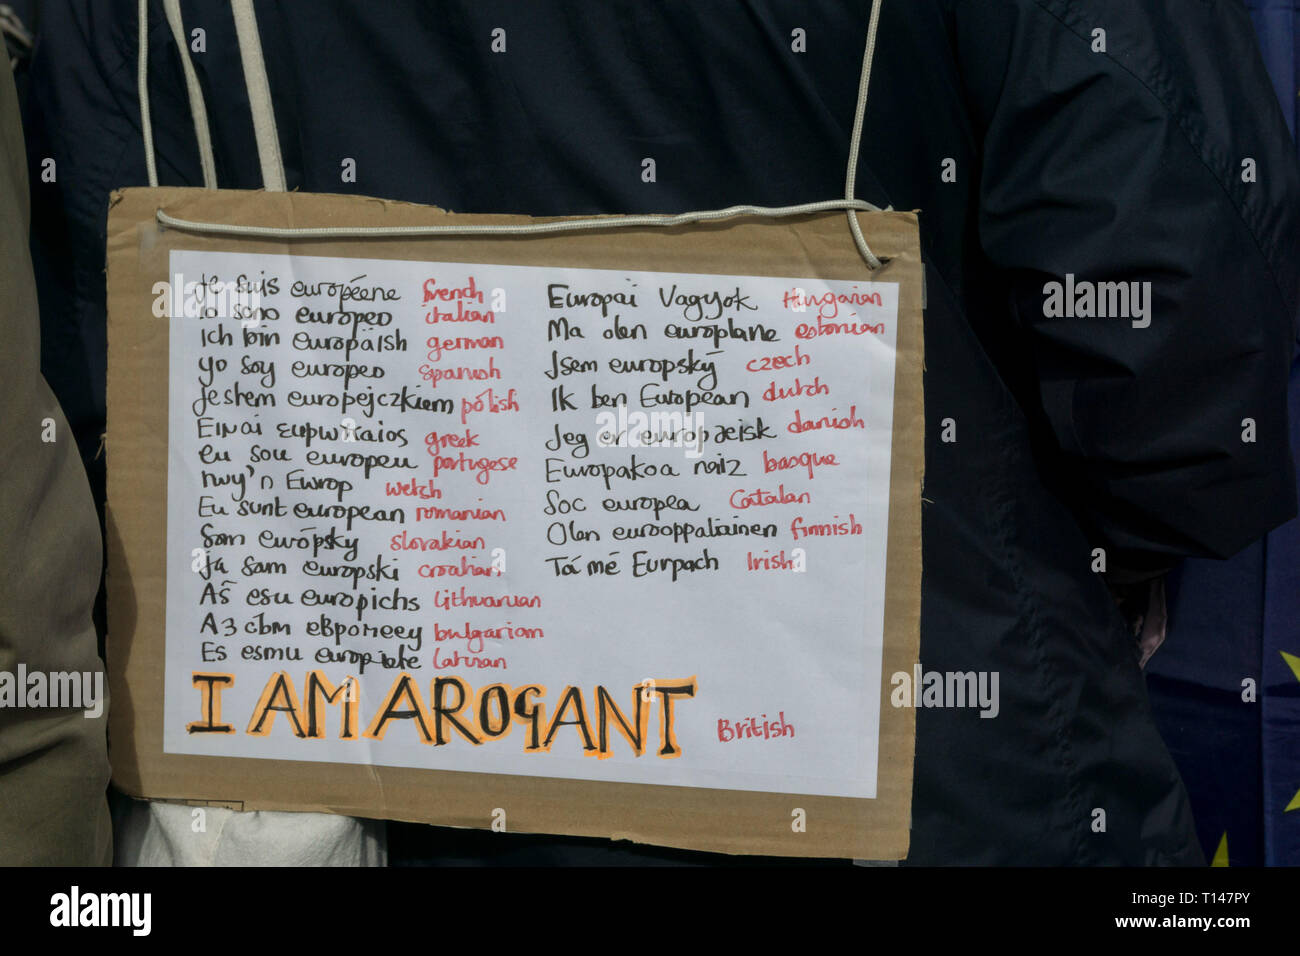 Je suis européene french
Io sono europeo italian
Ich bin europäish german
Yo soy europeo Spanish
Jestem europejczkiem polish
Ειναι ευρωπαιος greek
eu sou europeu portugese
rwy'n Ewrop welsh
Eu sunt european romanian
Som európsky slovakian
ja sam europski croatian
Aš esu europichs Lithuanian
АЗ съм европееу bulgarian
Es esmu europiete Latvian
I AM AROGANT British
Europai Vagyok Hungarian
Ma olen europlane estonian
Jsem europský czech
Ik ben European dutch
Jeg er europæisk danish
Europakoa naiz basque
Soc europea Catalan
Olen eurooppalainen finnish
Tá mé Eurpach Irish
alamy
alamy
Image ID: T147PY
www.alamy.com